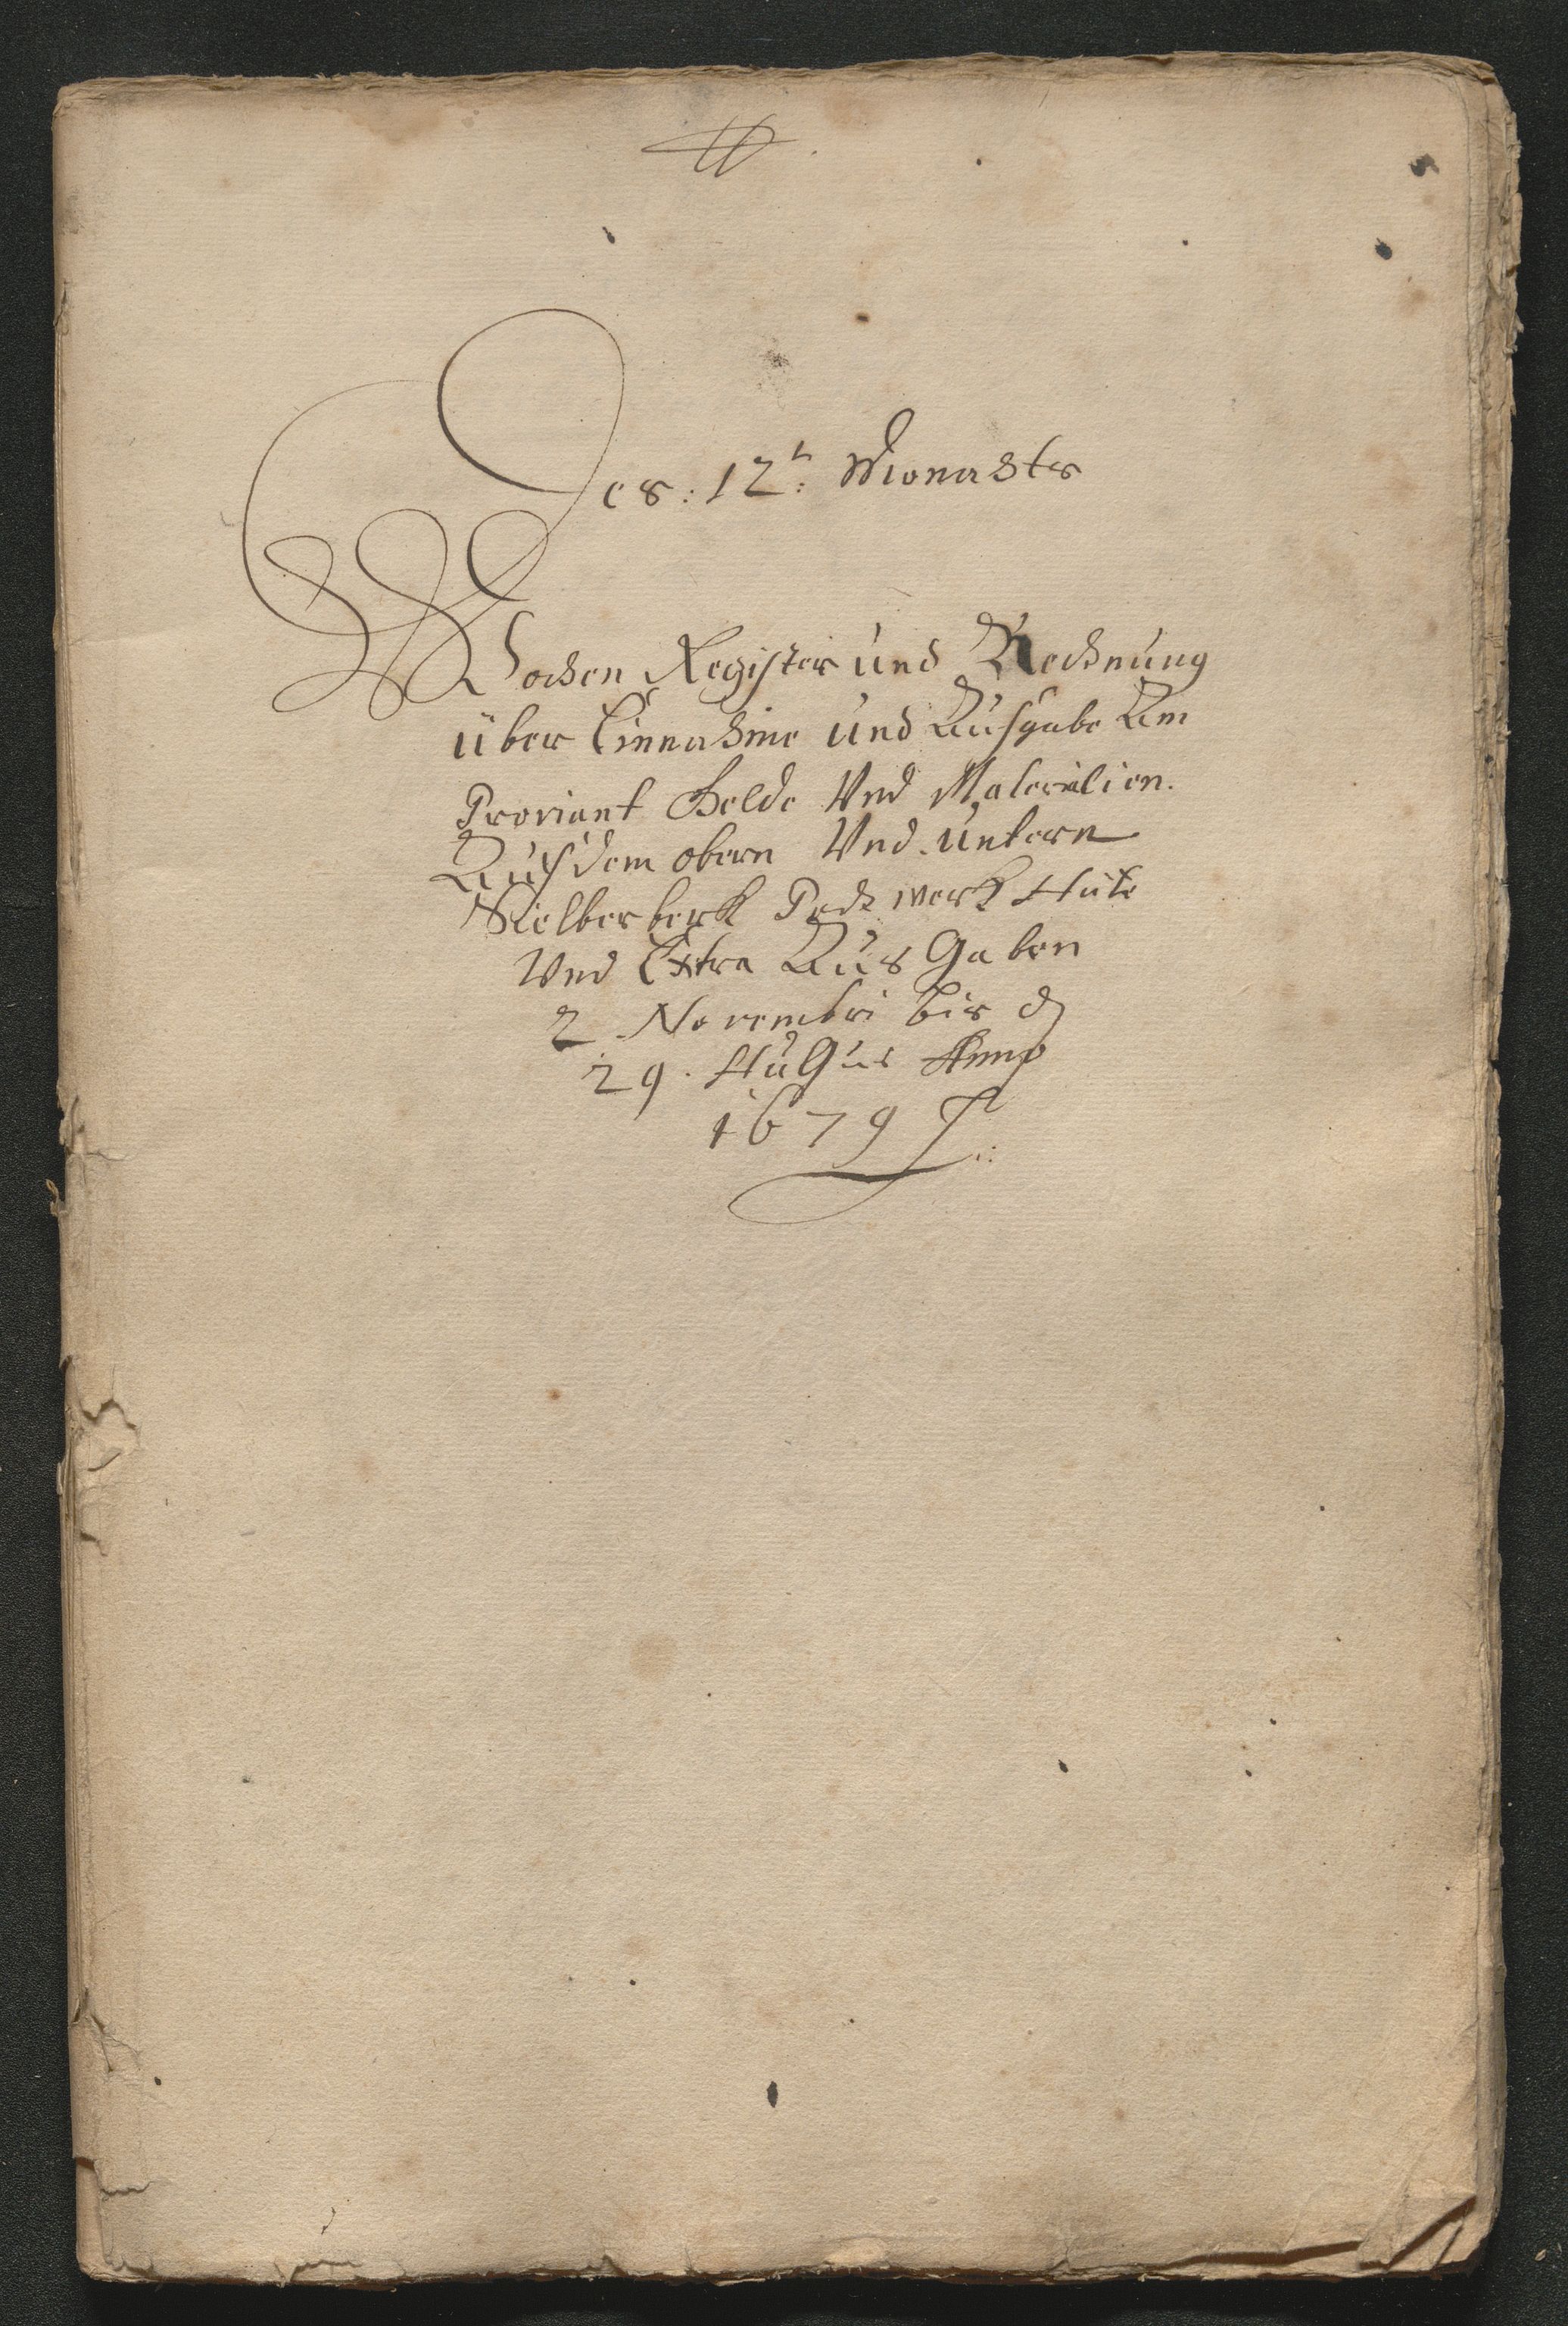 Des: 12t: Monahts
Wochen Register und Rechnung
über Einnahme und Ausgabe Am
Proviant Gelde Vnd Materialien.
Auf dem obern Vnd untern
Sielberberk Poch werk Hüte
Vnd Extra Aus Gaben
2 Novembri bis d
29. AuGus Anno
1679